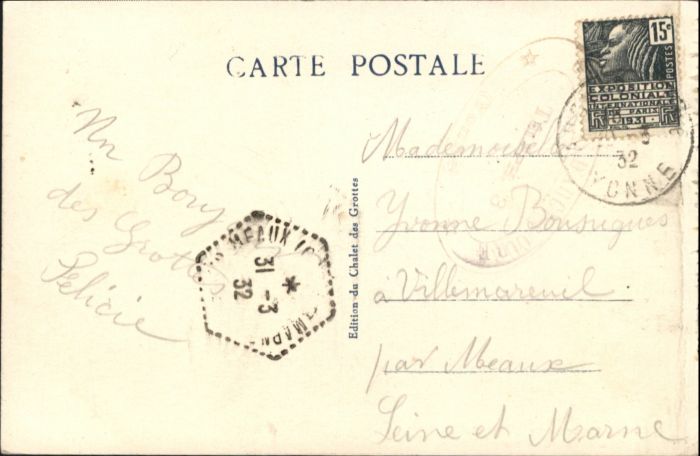 CARTE POSTALE
15c
POSTES
EXPOSITION
COLONIALE
INTERNATIONALE
DE PARIS
1931
3
32
YONNE
Un Bonjour
des Grottes
Félicie
MEAUX
31 -3
32
MARNE
Edition du Chalet des Grottes
Mademoiselle
Yvonne Bousigues
à Villemareuil
par Meaux
Seine et Marne